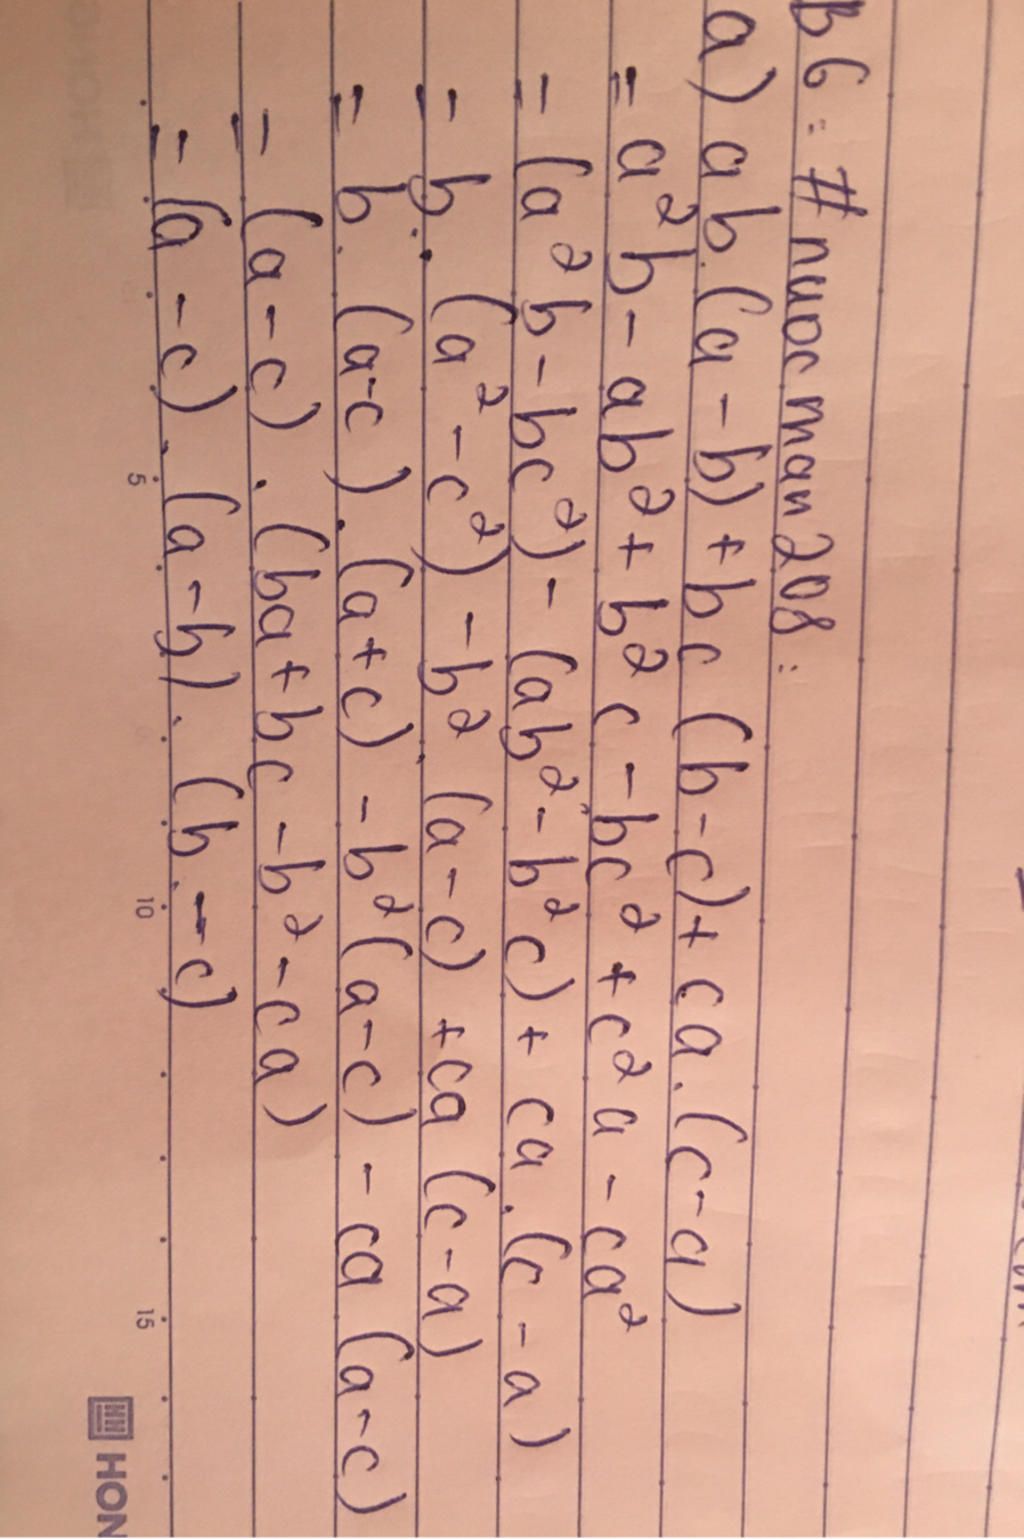 B6: #nuocmam208:
a) ab.(a-b)+bc(b-c)+ca.(c-a)
= a²b-ab²+b²c-bc²+c²a-ca²
= (a²b-bc²)-(ab²-b²c)+ca.(c-a)
= b.(a²-c²)-b².(a-c)+ca(c-a)
= b.(a-c).(a+c)-b²(a-c)-ca(a-c)
= (a-c).(ba+bc-b²-ca)
= (a-c).(a-b).(b-c)
5 10 15
HON